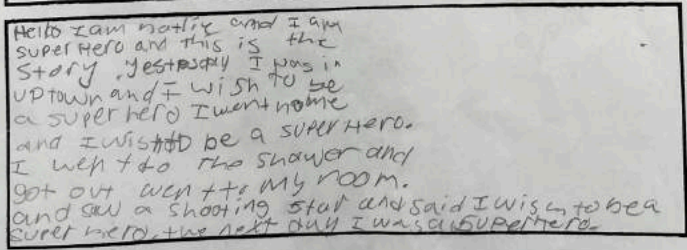 Hello I am natlie and I am
super Hero and this is the
Story. Yestesday I was in
uptown and I wish to be
a super hero I went home
and I wish to be a super Hero.
I went to the shower and
got out went to my room.
and saw a shooting star and said I wish to be a
super hero. the next day I was a superhero.